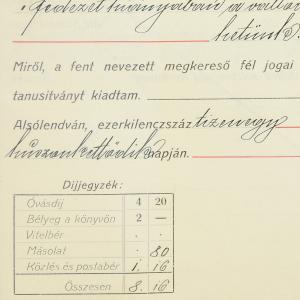 fedezet hiányában a
hetünk.
Miről, a fent nevezett megkereső fél jogai
tanusítványt kiadtam.
Alsólendván, ezerkilenczszáz tizenegy
huszonkettődik napján.
Díjjegyzék:
Óvásdíj 4 20
Bélyeg a könyvön 2 —
Vitelbér . .
Másolat . 80
Közlés és postabér 1. 16
Összesen 8. 16